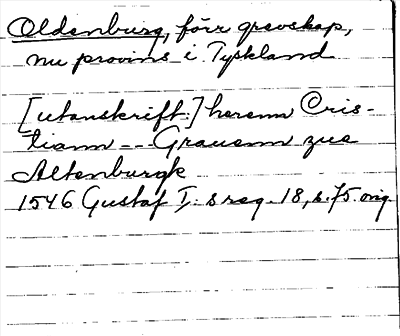 Oldenburg, förr grevskap,
nu provins i Tyskland
[utanskrift:] herenn Cris-
tiann -- Grauenn zue
Altenburgk
1546 Gustaf I:s reg. 18, s. 75. orig.